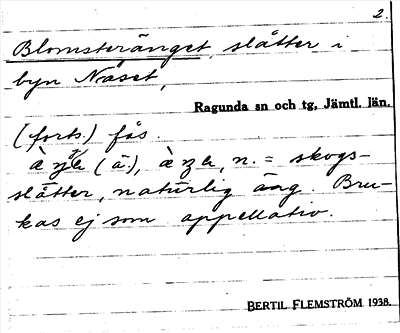 2.
Blomsteränget, slåtter i
byn Näset,
Ragunda sn och tg, Jämtl. län.
(forts.) fås.
(ä.), n. = skogs-
slåtter, naturlig äng. Bru-
kas ej som appellativ.
BERTIL FLEMSTRÖM 1938.